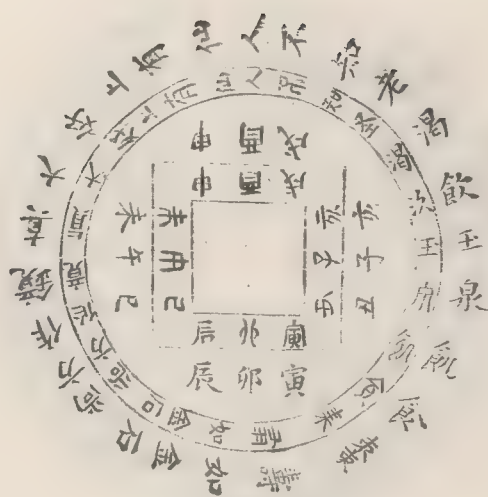 尚方作鏡真大好上有仙人不知老渴飲玉泉飢食棗壽如金石
尚方作竟真大好上有山人不知老渴次玉泉飢食棗壽如金石
子丑寅卯辰巳午未申酉戌亥
子丑寅卯辰巳午未申酉戌亥